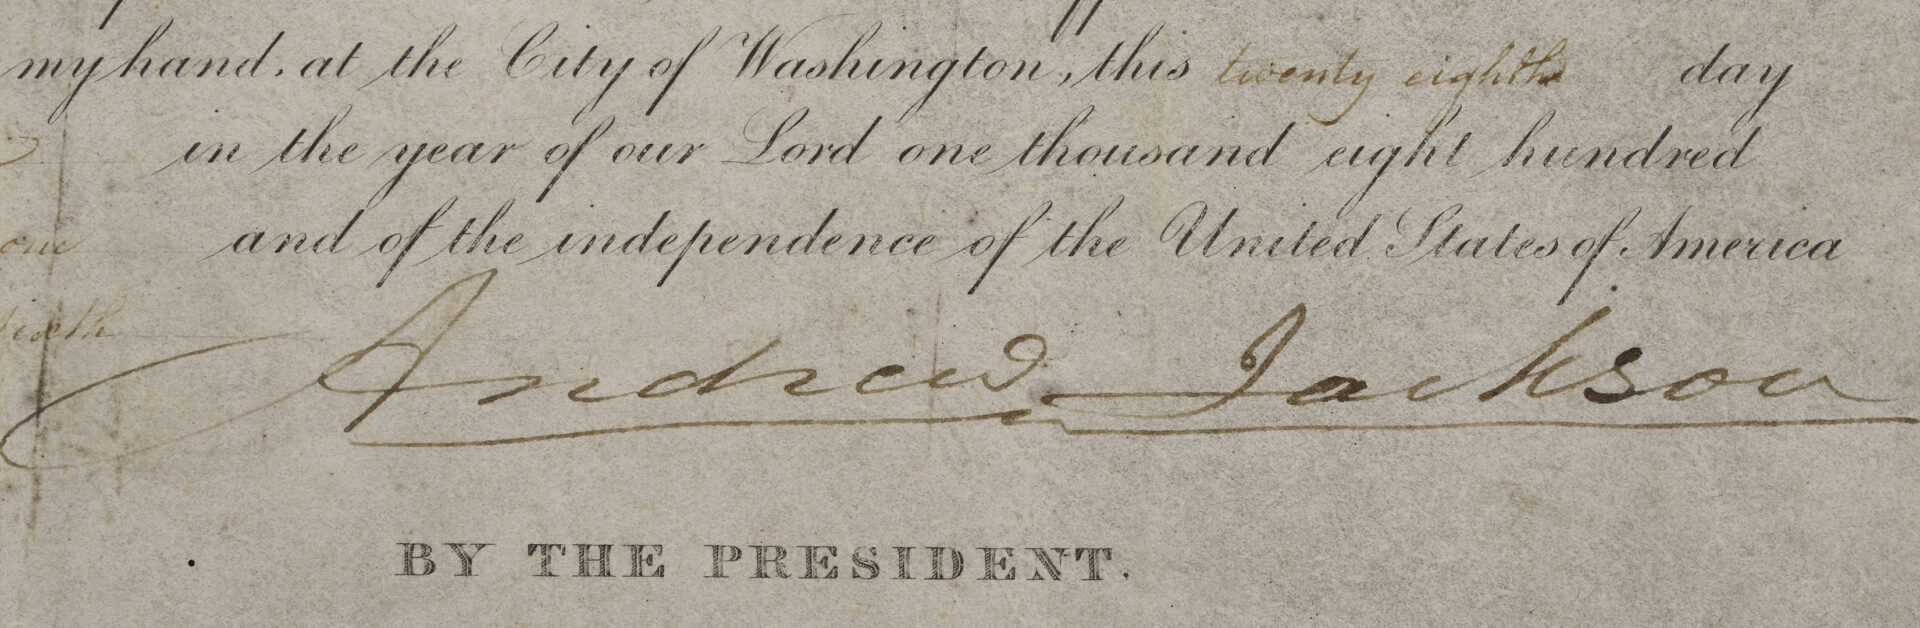 my hand, at the City of Washington, this twenty eighth day
in the year of our Lord one thousand eight hundred
one and of the independence of the United States of America
sixth
Andrew Jackson
BY THE PRESIDENT.